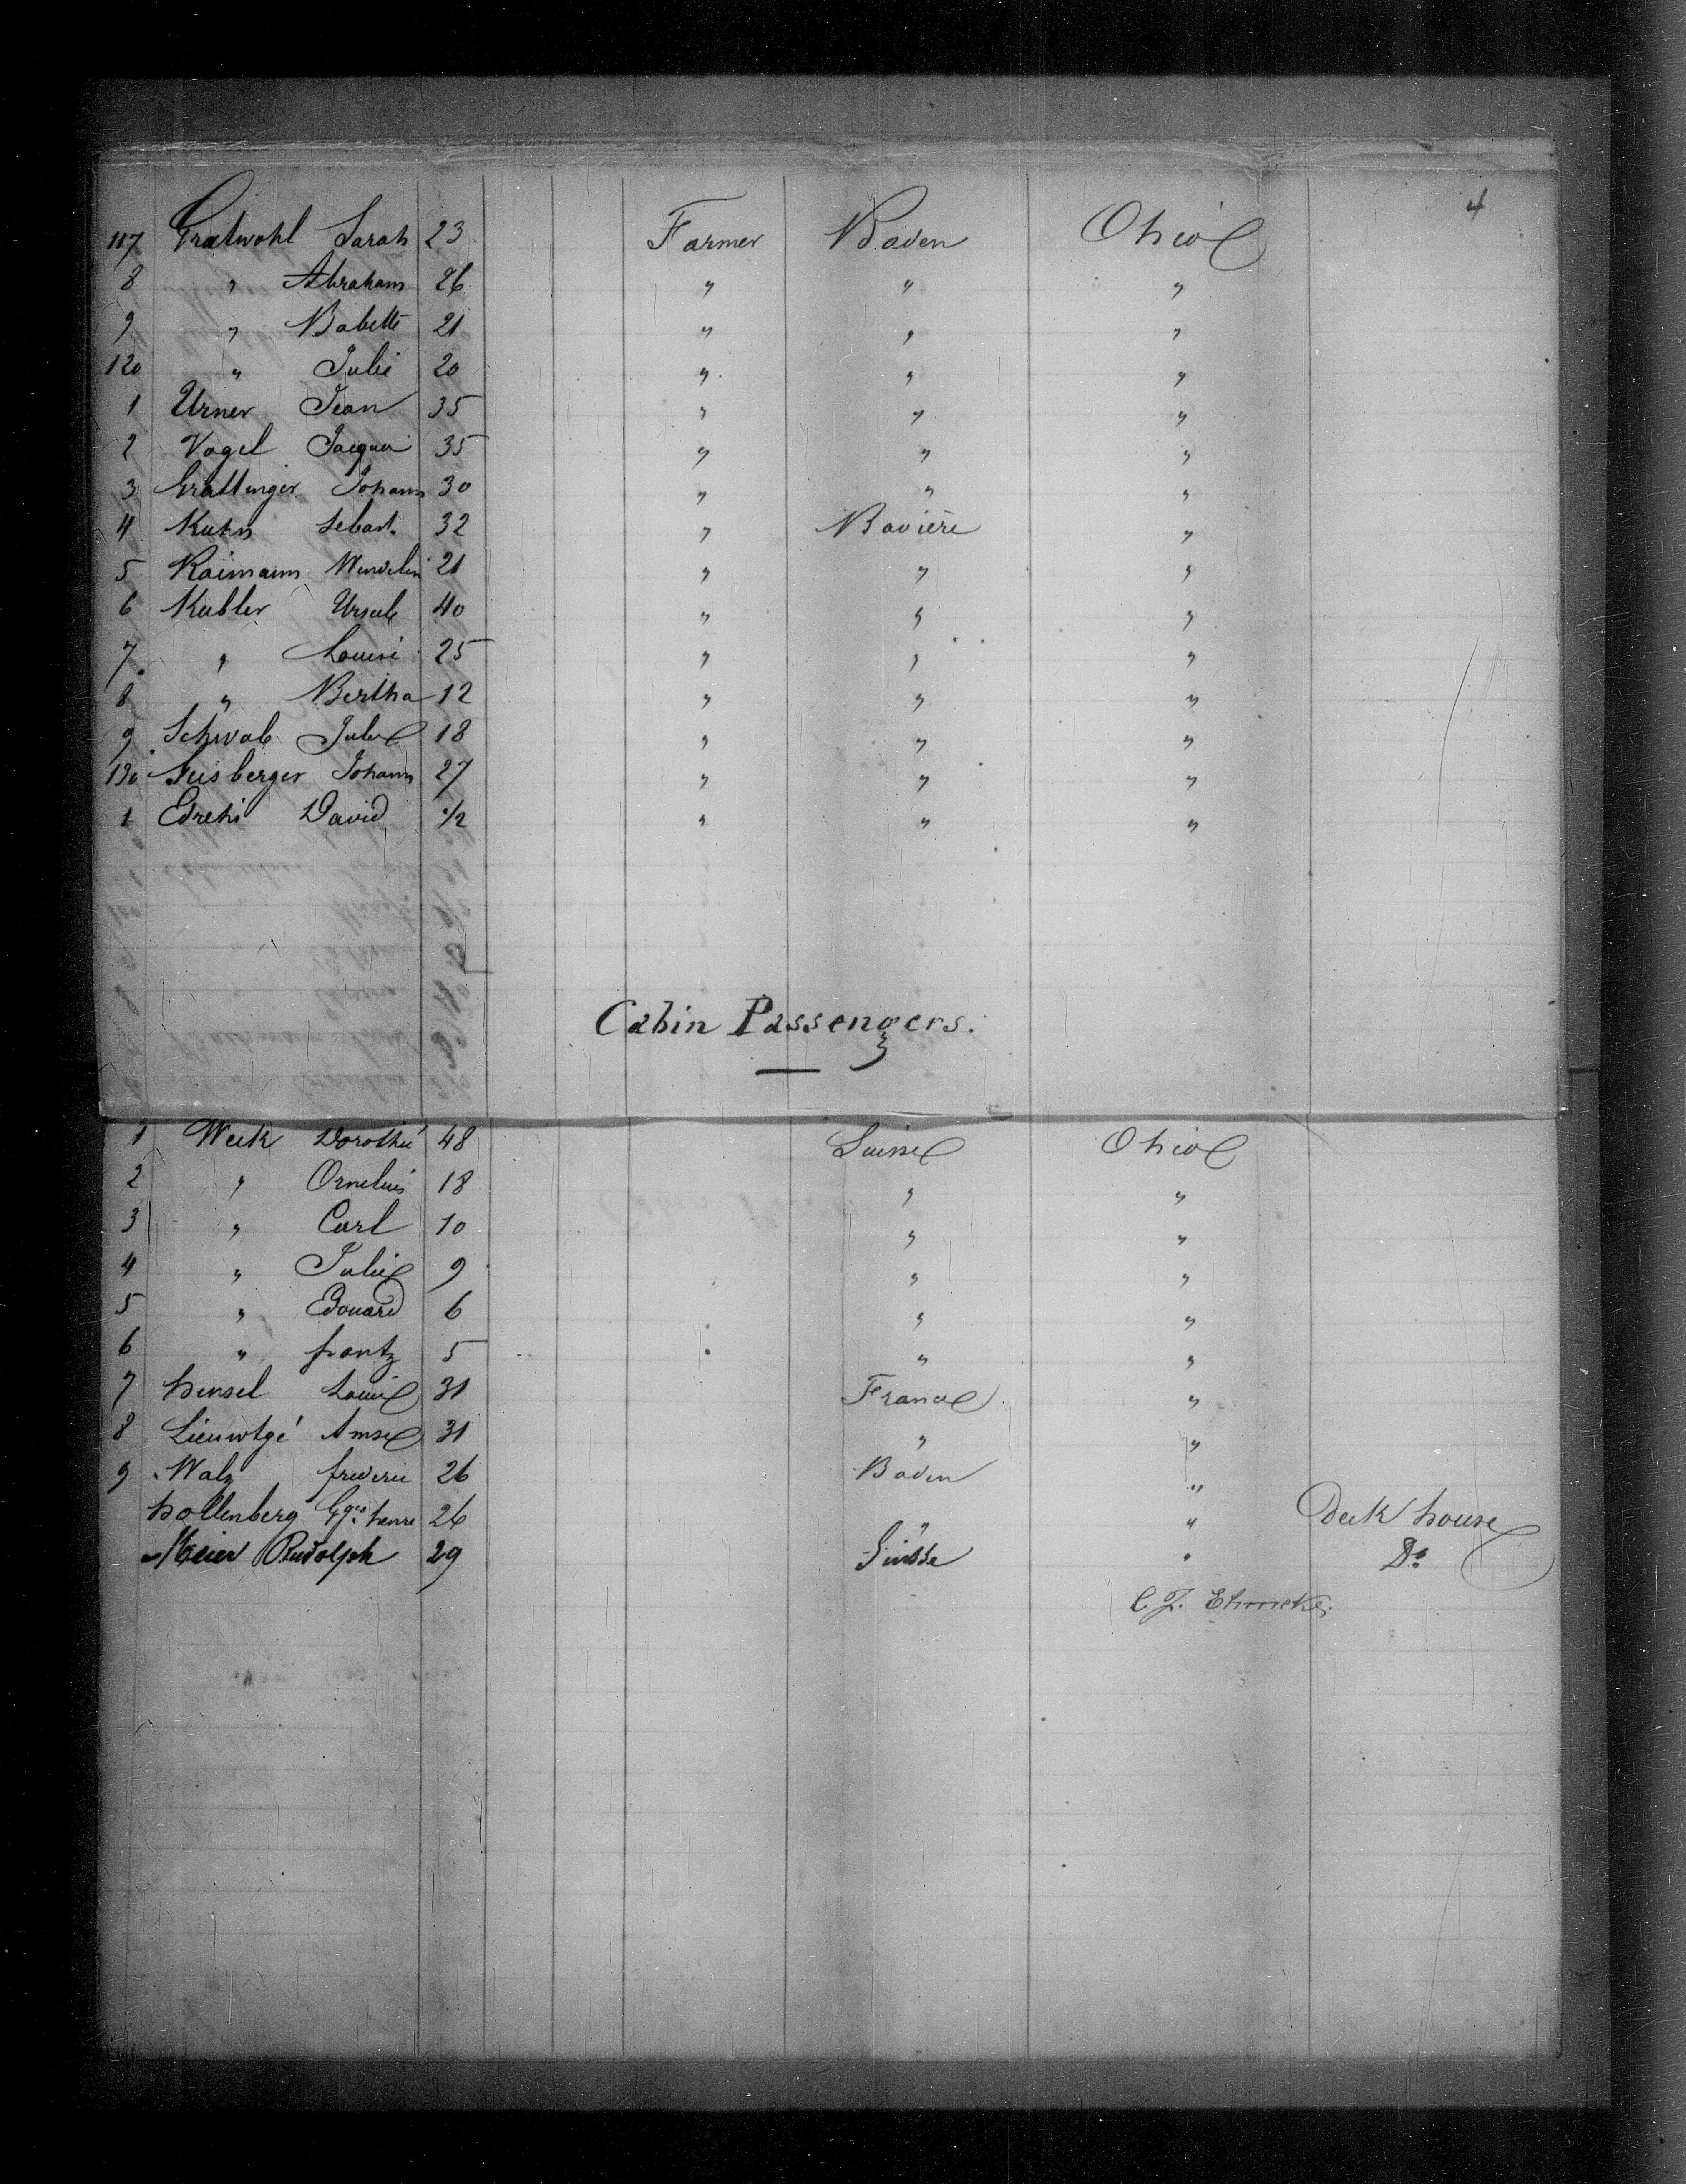 4
117 Gratwohl Sarah 23 Farmer Baden Ohio
8 " Abraham 26 " " "
9 " Babette 21 " " "
120 " Julie 20 " " "
1 Urner Jean 35 " " "
2 Vogel Jacques 35 " " "
3 Grattinger Johann 30 " " "
4 Kuhn Sebast. 32 " Bavière "
5 Raimann Wendelin 21 " " "
6 Kubler Ursule 40 " " "
7 " Louise 25 " " "
8 " Bertha 12 " " "
9 Schwab Jules 18 " " "
130 berger Johann 27 " " "
1 Edrehi David 1/2 " " "
Cabin Passengers.
1 Weck Dorothée 48 Suisse Ohio
2 " Ornelius 18 " "
3 " Carl 10 " "
4 " Julie 9 " "
5 " Edouard 6 " "
6 " frantz 5 " "
7 hensel Louise 31 France "
8 31 " "
9 Walz frederic 26 Baden "
hollenberg Ges henre 26 " " Deck house
Meier Rudolph 29 Suisse " Do